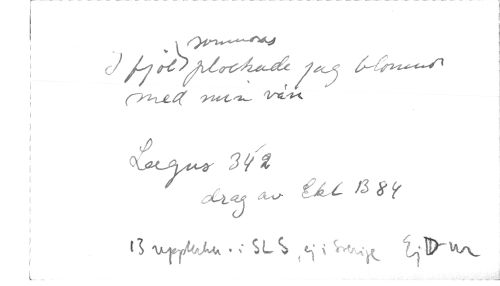 sommras
I fjol plockade jag blommor
med min vän
Lægus 342
drag av EkL B 84
13 uppteckn. i SLS, ej i Sverige Ej D ur